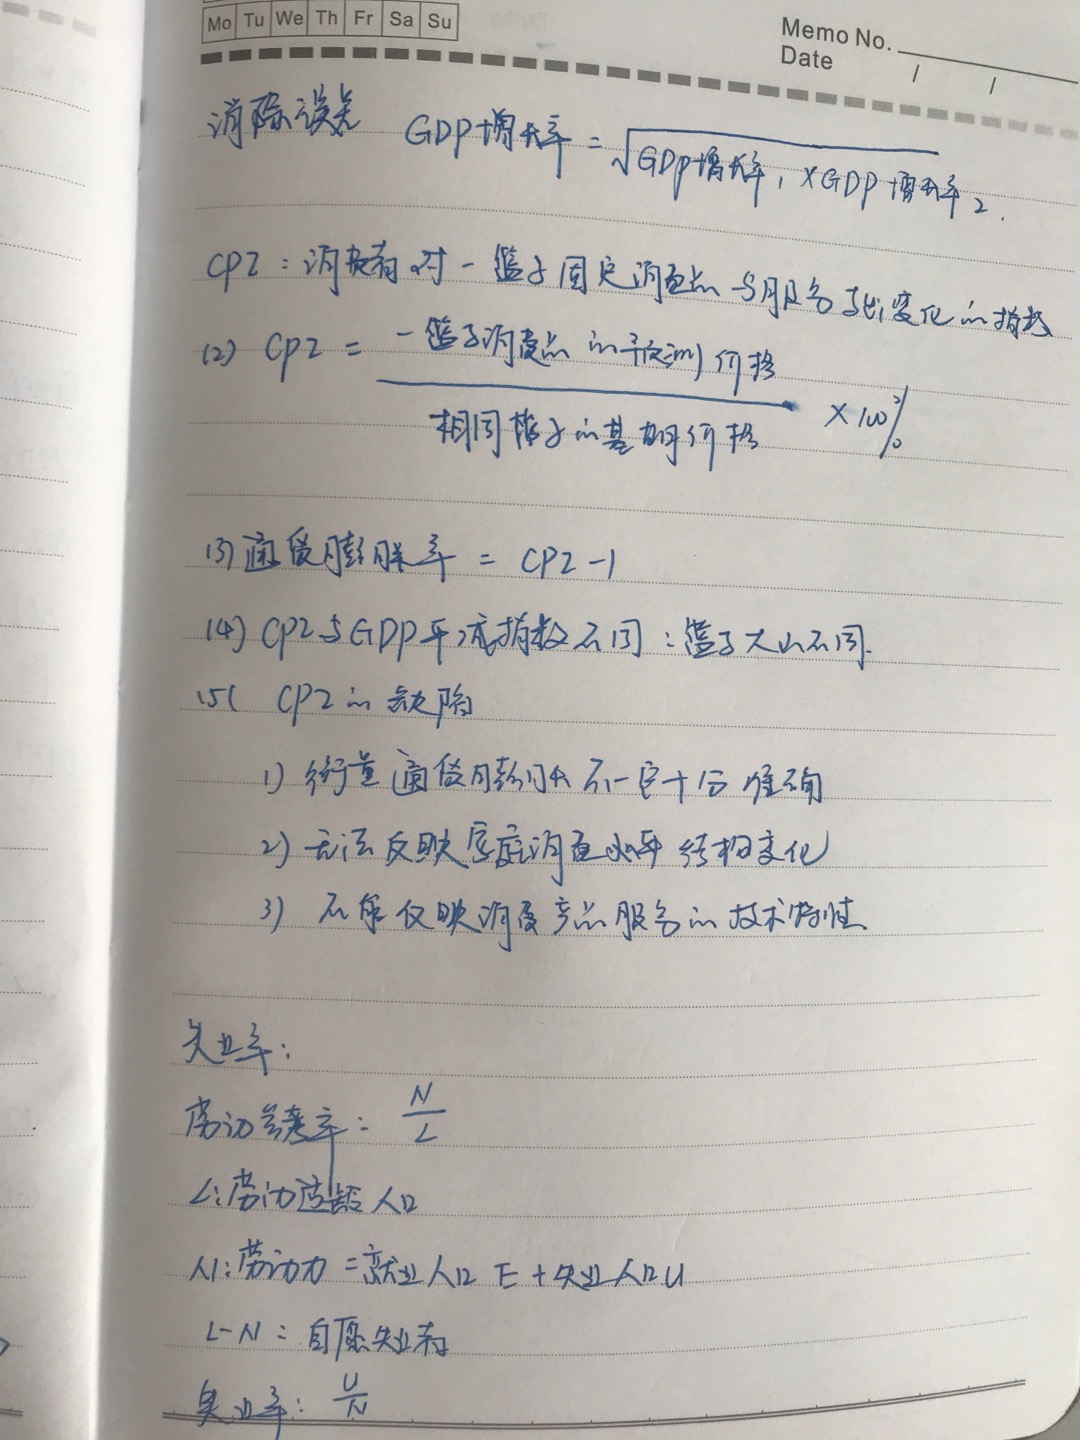 Mo Tu We Th Fr Sa Su
Memo No.
Date / /
消除误差 GDP增长率 = √GDP增长率₁ × GDP增长率₂.
CPI：消费者对一篮子固定消费品与服务支出变化的指数
(2) CPI = 一篮子消费品的 价格
相同篮子的基期价格 × 100%
(3) 通货膨胀率 = CPI - 1
(4) CPI与GDP平减指数不同：篮子大小不同.
(5) CPI的缺陷
1) 衡量通货膨胀不一定十分准确
2) 无法反映家庭消费水平结构变化
3) 不能反映消费产品服务的技术特性
失业率：
劳动参与率： N/L
L：劳动适龄人口
N：劳动力 = 就业人口E + 失业人口U
L-N = 自愿失业者
失业率： U/N